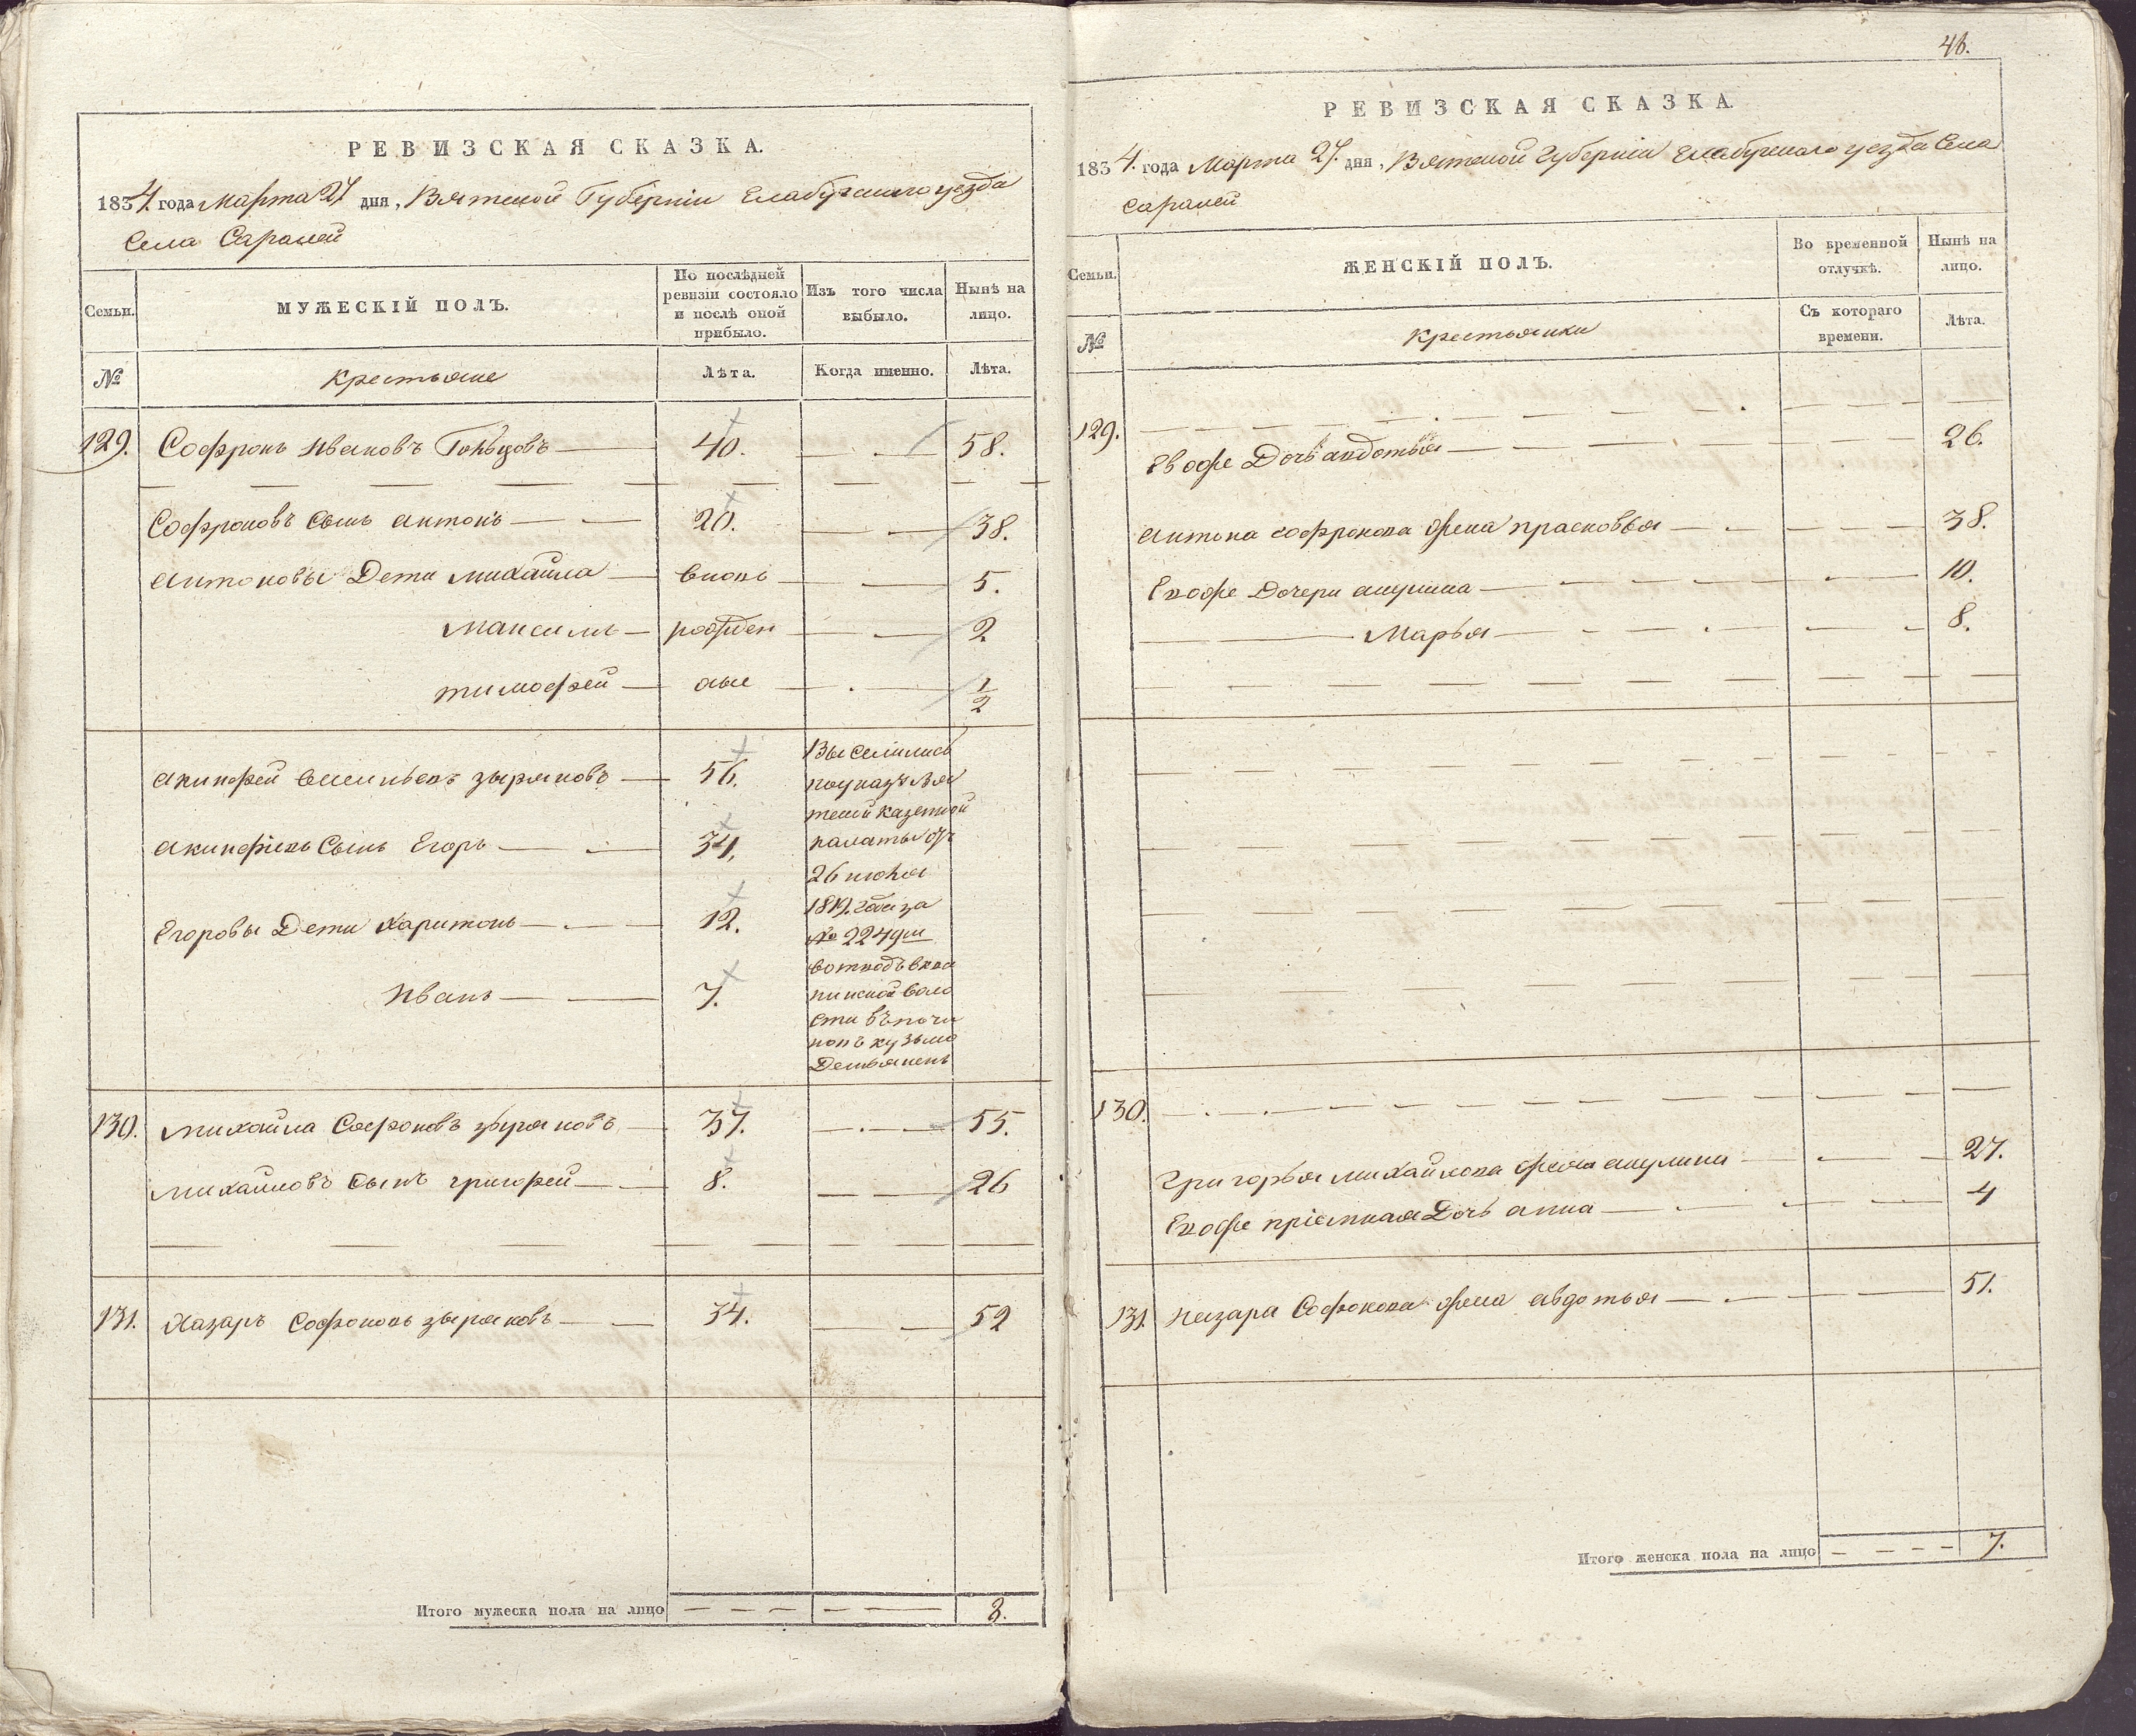 РЕВИЗСКАЯ СКАЗКА.
1834. года Марта 27 дня, Вятской Губерніи Елабужского уезда
Села Саралей
Семьи.
МУЖЕСКІЙ ПОЛЪ.
По послѣдней ревизіи состояло и послѣ оной прибыло.
Изъ того числа выбыло.
Нынѣ на лицо.
№
Крестьяне
Лѣта.
Когда именно.
Лѣта.
129. Софронъ Ивановъ 40. 58.
Софроновъ Сынъ Антонъ 20. 38.
Антоновы Дети Михайла вновь 5.
Максимъ рожден 2.
Тимофей ные 1/2
Акинфей Васильевъ Зыряновъ 56.
Акинфіевъ Сынъ Егоръ 34.
Егоровы Дети Харитонъ 12.
Иванъ 7.
Выселились
по указу Вят
ской казенной
палаты отъ
26 июня
1819. года за
№ 2249м
пинской воло
сти въ почи
нокъ Кузьмо
Демьянскъ
130. Михайла Софроновъ Зыряновъ 37. 55.
Михайловъ Сынъ Григорей 8. 26
131. Назаръ Софроновъ Зыряновъ 34. 52
Итого мужеска пола на лицо 8.
46.
РЕВИЗСКАЯ СКАЗКА.
1834. года Марта 27. дня, Вятской Губерніи Елабужского уезда Села
Саралей
Семьи.
ЖЕНСКІЙ ПОЛЪ.
Во временной отлучкѣ.
Нынѣ на лицо.
№
Крестьянки
Съ котораго времени.
Лѣта.
129.
Его же Дочь Авдотья 26.
Антона Софронова жена Прасковья 38.
Его же Дочери Акулина 10.
Марья 8.
130.
Григорья Михайлова жена Акулина 27.
Его же пріемная Дочь Анна 4
131. Назара Софронова жена Авдотья 51.
Итого женска пола на лицо 7.